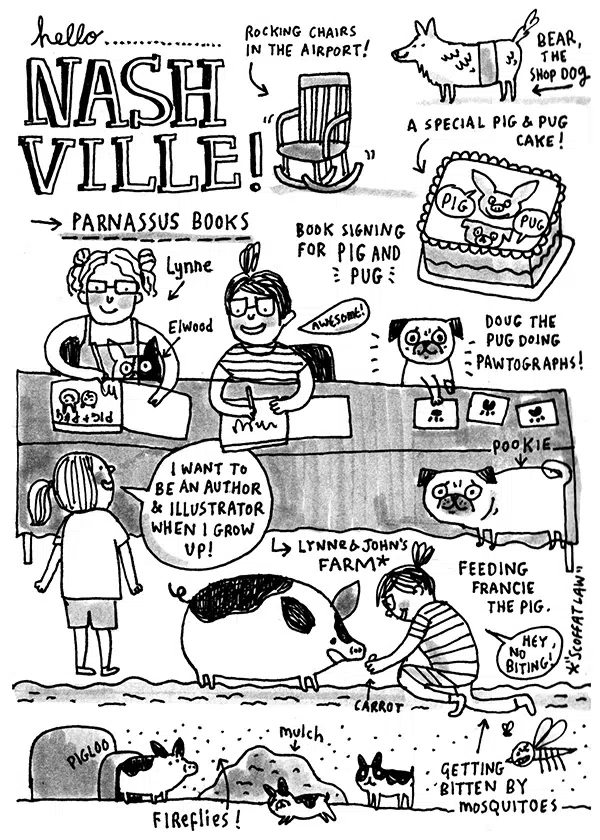 hello..................
NASH
VILLE!
ROCKING CHAIRS
IN THE AIRPORT!
BEAR,
THE
SHOP DOG
A SPECIAL PIG & PUG
CAKE!
PIG
PUG
PARNASSUS BOOKS
BOOK SIGNING
FOR PIG AND
PUG
Lynne
Elwood
AWESOME!
DOUG THE
PUG DOING
PAWTOGRAPHS!
PIG+PUG
POOKIE
I WANT TO
BE AN AUTHOR
& ILLUSTRATOR
WHEN I GROW
UP!
LYNNE & JOHN'S
FARM*
FEEDING
FRANCIE
THE PIG.
HEY,
NO
BITING!
*"SCOFFATLAW"
CARROT
PIGLOO
mulch
FIReflies!
GETTING
BITTEN BY
MOSQUITOES